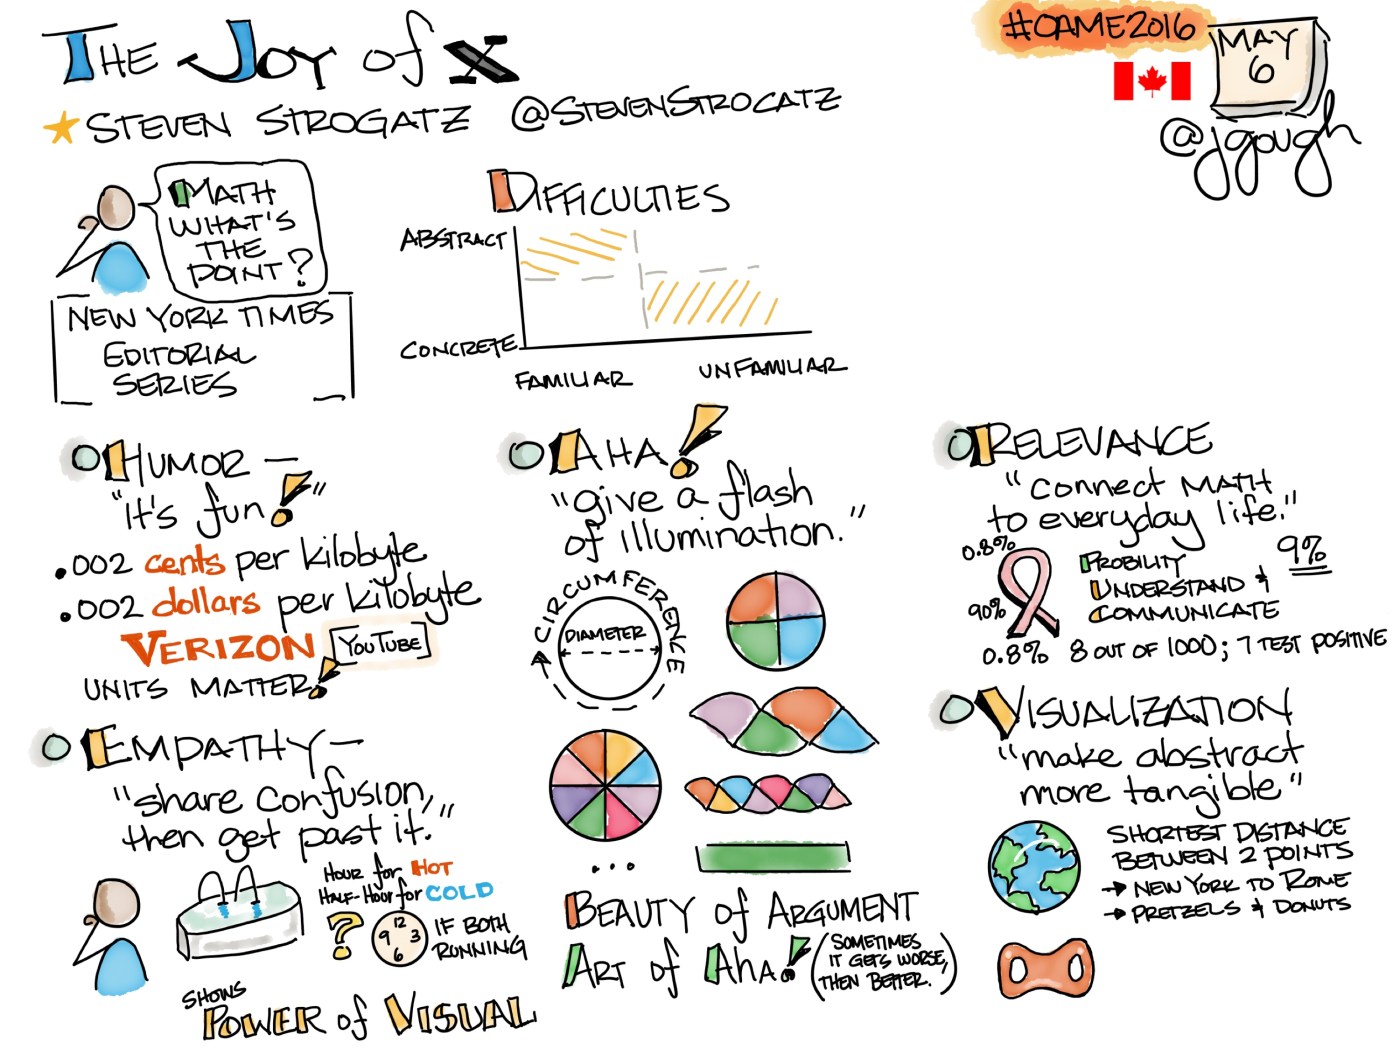 THE JOY of X
STEVEN STROGATZ @STEVENSTROGATZ
#OAME2016
MAY
6
@jgough
MATH
WHAT'S
THE
POINT?
NEW YORK TIMES
EDITORIAL
SERIES
DIFFICULTIES
ABSTRACT
CONCRETE
FAMILIAR
UNFAMILIAR
HUMOR —
"it's fun!"
.002 cents per kilobyte
.002 dollars per kilobyte
VERIZON [YOUTUBE]
UNITS MATTER!
EMPATHY —
"share confusion,
then get past it."
HOUR for HOT
HALF-HOUR for COLD
?
12
9 3
6
IF BOTH
RUNNING
SHOWS
POWER of VISUAL
AHA!
"give a flash
of illumination."
CIRCUMFERENCE
DIAMETER
...
BEAUTY of ARGUMENT
ART of AHA!
(SOMETIMES
IT GETS WORSE,
THEN BETTER.)
RELEVANCE
"connect MATH
to everyday life."
0.8%
90%
0.8%
PROBILITY
UNDERSTAND &
COMMUNICATE
9%
8 OUT OF 1000; 7 TEST POSITIVE
VISUALIZATION
"make abstract
more tangible"
SHORTEST DISTANCE
BETWEEN 2 POINTS
→ NEW YORK TO ROME
→ PRETZELS & DONUTS